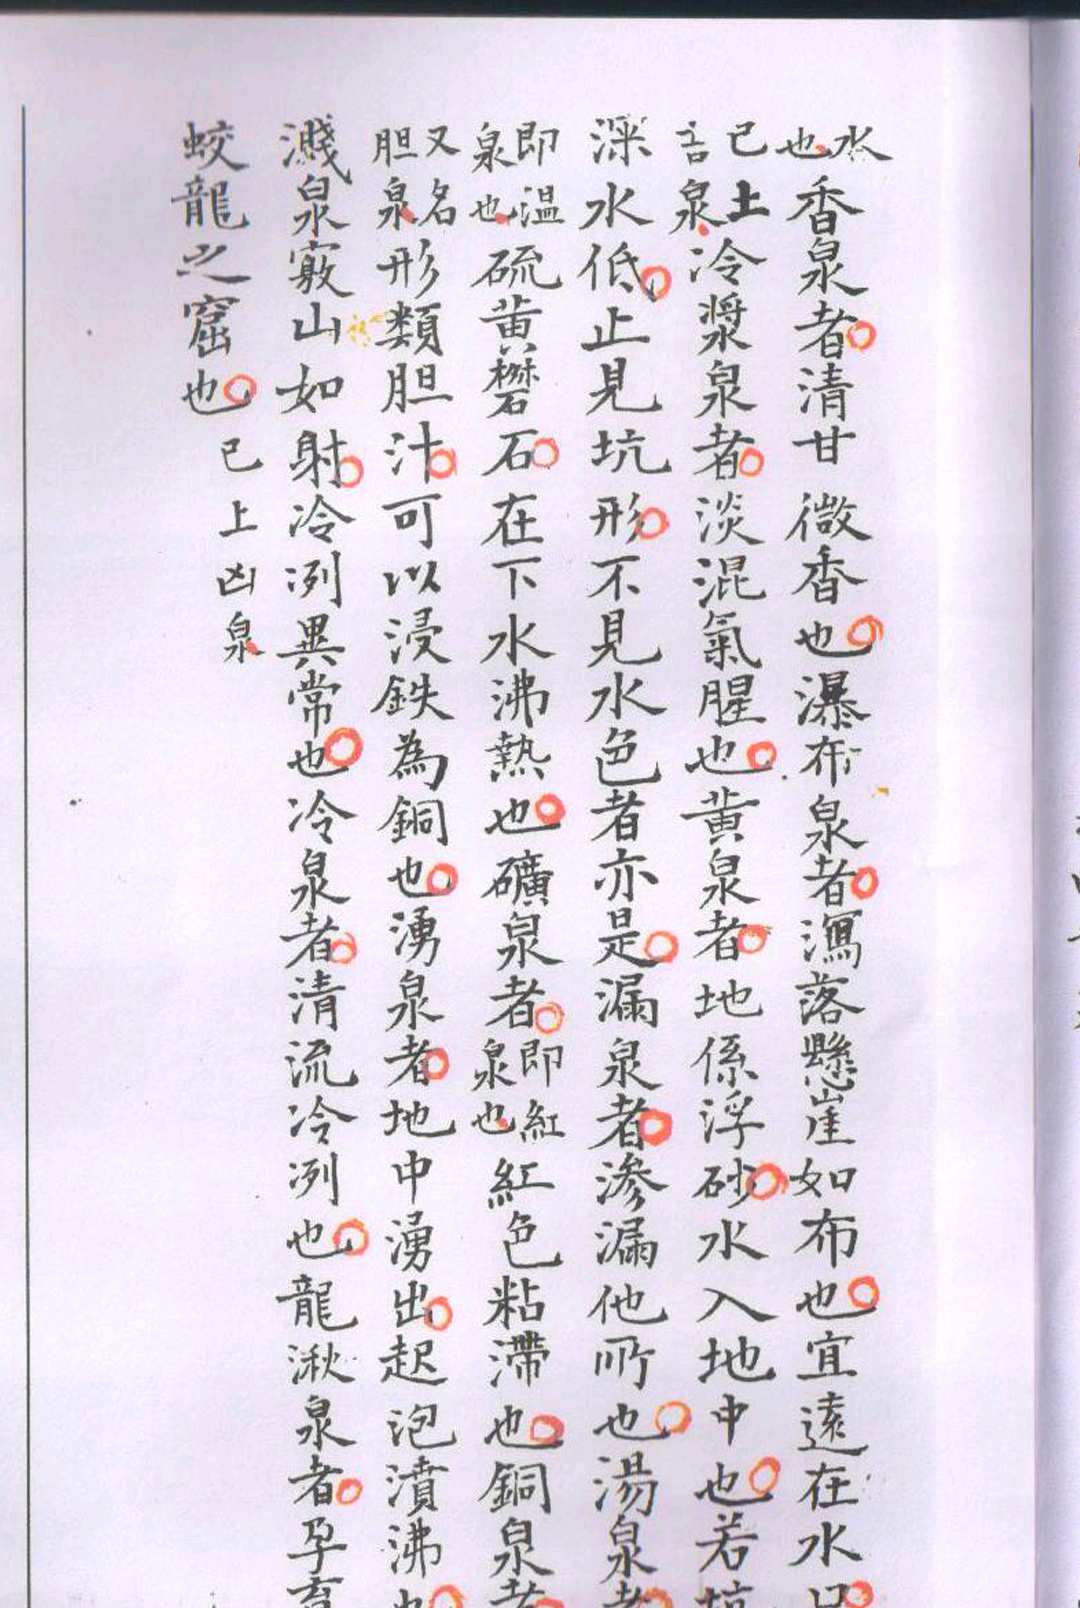 水也香泉者清甘微香也瀑布泉者瀉落懸崖如布也宜遠在水口
已上吉泉冷漿泉者淡混氣腥也黃泉者地係浮砂水入地中也若坑
深水低止見坑形不見水色者亦是漏泉者滲漏他所也湯泉者
即温泉也硫黃礬石在下水沸熱也礦泉者即紅泉也紅色粘滯也銅泉者
又名胆泉形類胆汁可以浸鉄為銅也湧泉者地中湧出起泡濆沸也
濺泉竅山如射冷冽異常也冷泉者清流冷冽也龍湫泉者孕育
蛟龍之窟也已上凶泉